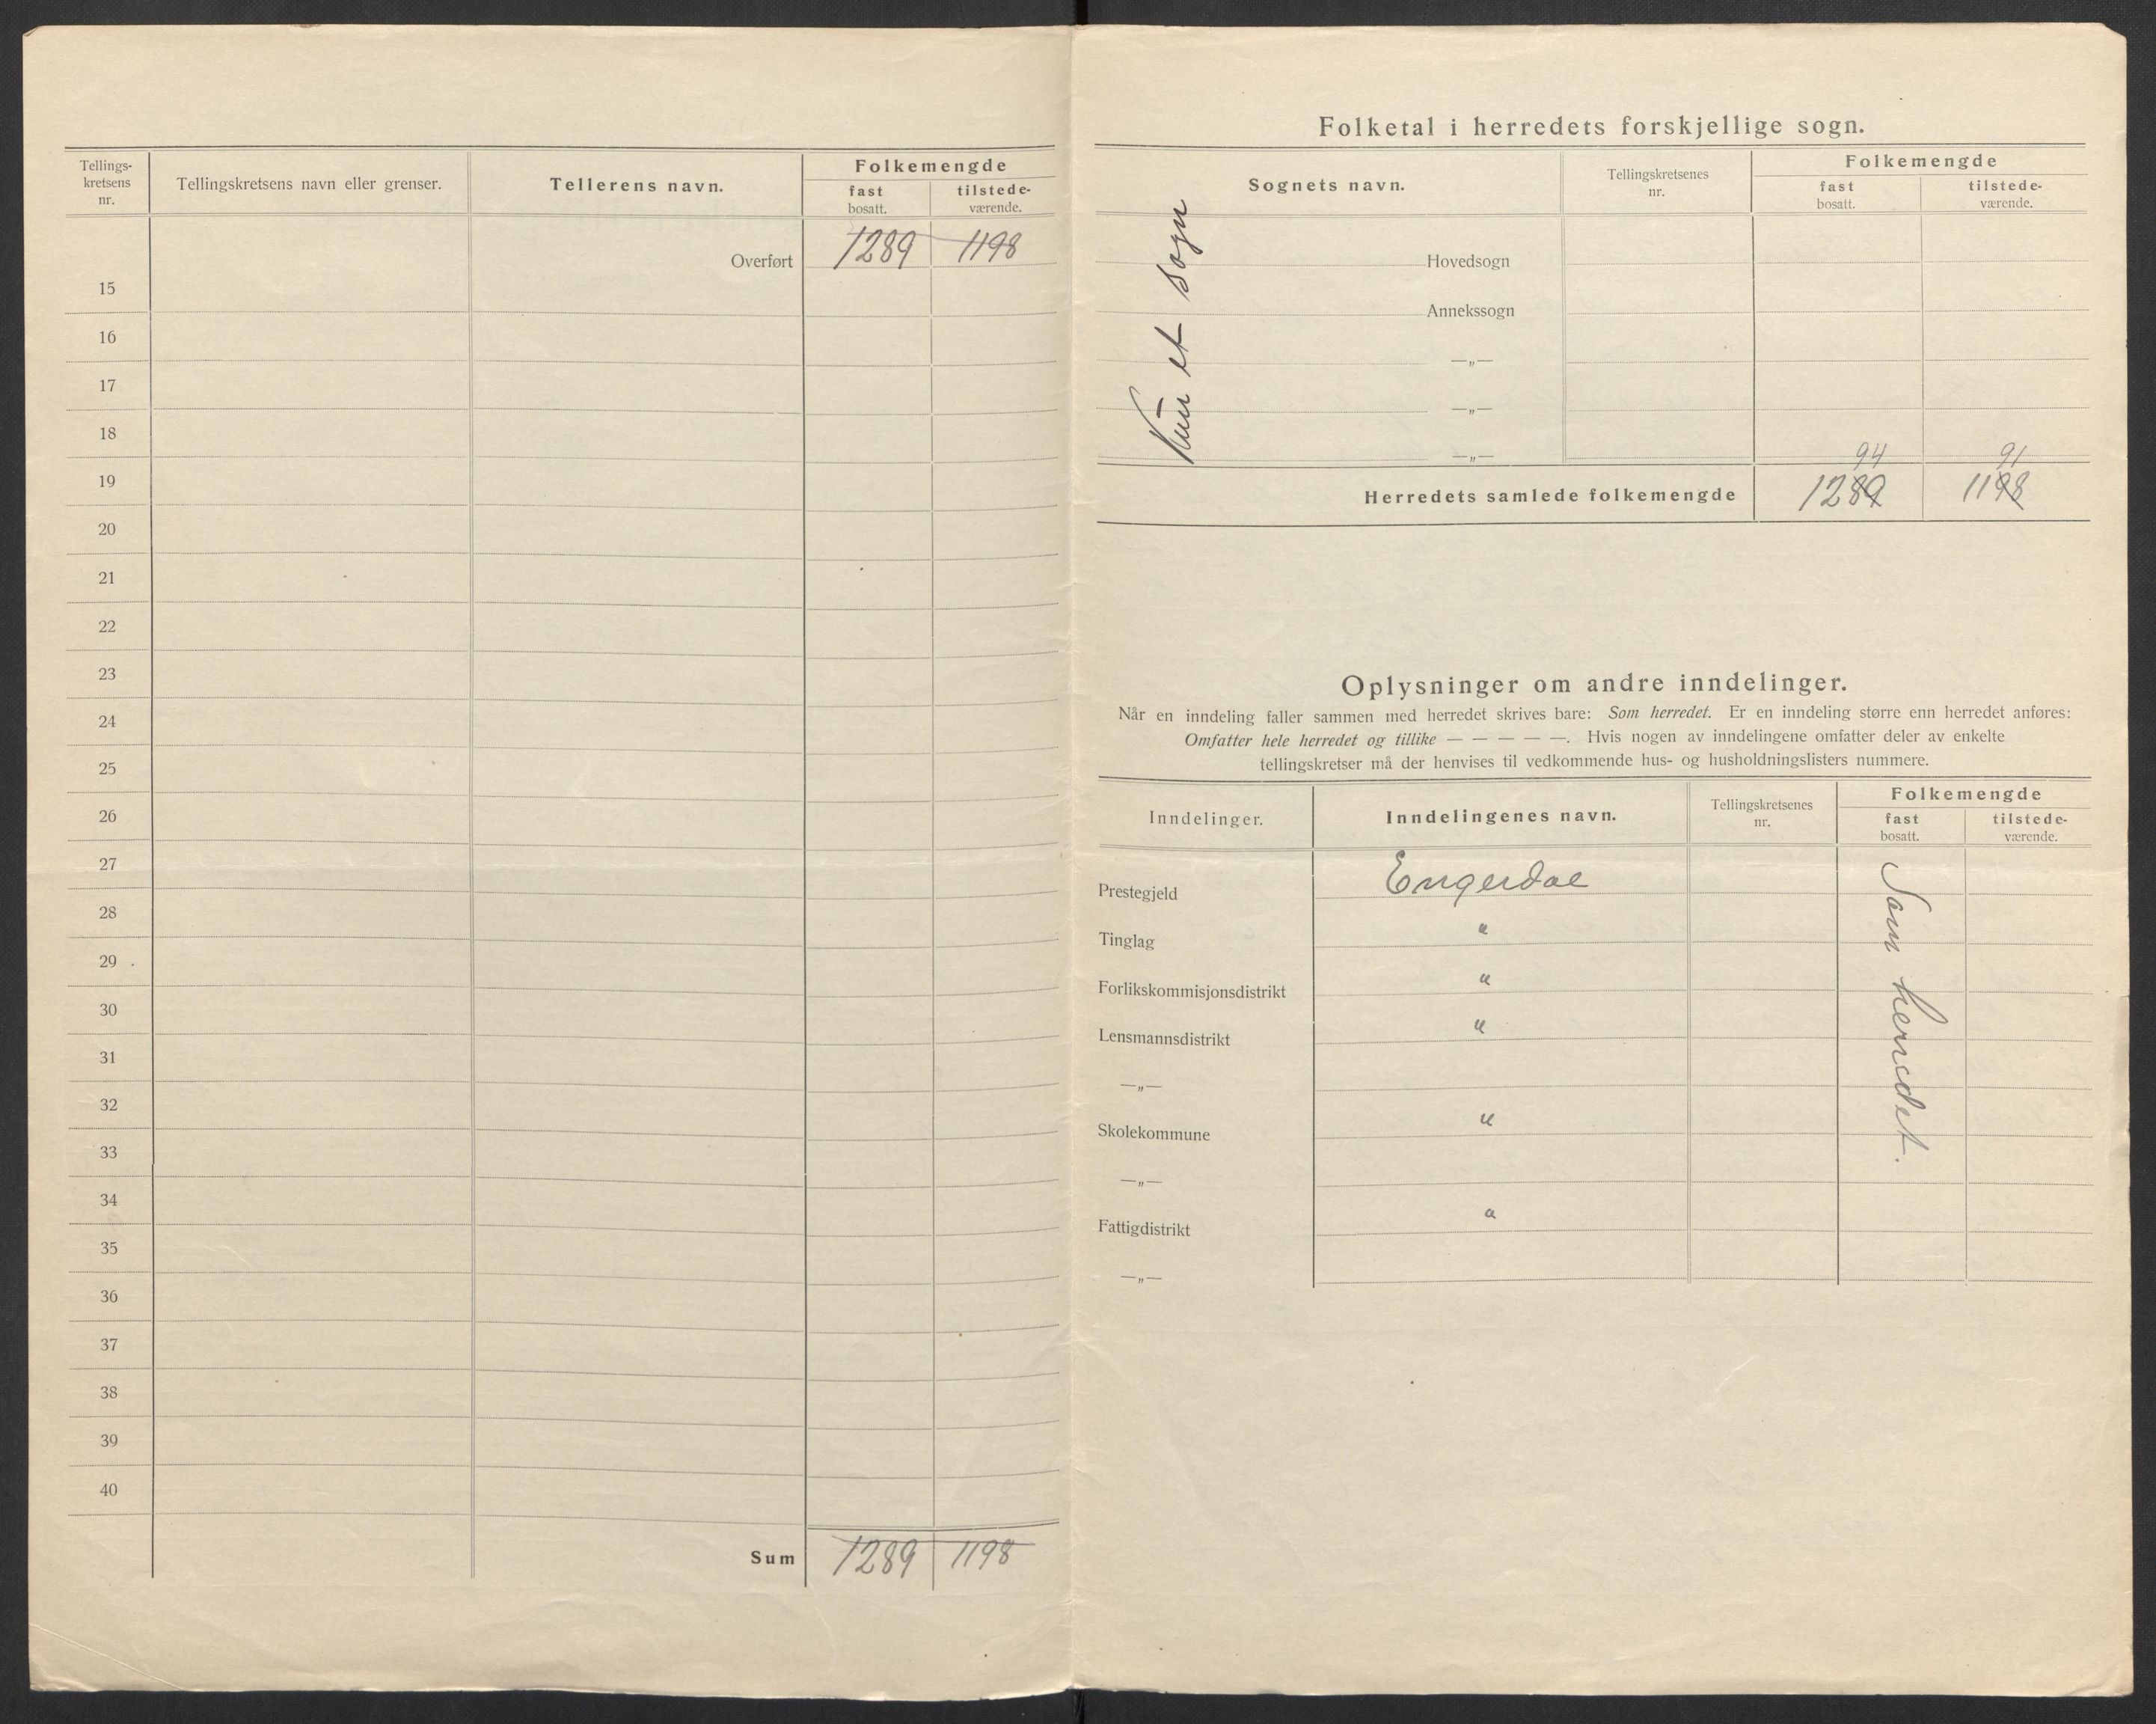 Tellings-
kretsens
nr.
Tellingskretsens navn eller grenser.
Tellerens navn.
Folkemengde
fast
bosatt.
tilstede-
værende.
Overført 1289 1198
15
16
17
18
19
20
21
22
23
24
25
26
27
28
29
30
31
32
33
34
35
36
37
38
39
40
Sum 1289 1198
Folketal i herredets forskjellige sogn.
Sognets navn.
Tellingskretsenes
nr.
Folkemengde
fast
bosatt.
tilstede-
værende.
Kun et sogn
Hovedsogn
Annekssogn
—„—
—„—
—„—
94 91
Herredets samlede folkemengde 1289 1198
Oplysninger om andre inndelinger.
Når en inndeling faller sammen med herredet skrives bare: Som herredet. Er en inndeling større enn herredet anføres:
Omfatter hele herredet og tillike — — — — —. Hvis nogen av inndelingene omfatter deler av enkelte
tellingskretser må der henvises til vedkommende hus- og husholdningslisters nummere.
Inndelinger.
Inndelingenes navn.
Tellingskretsenes
nr.
Folkemengde
fast
bosatt.
tilstede-
værende.
Prestegjeld Engerdal
Tinglag "
Forlikskommisjonsdistrikt "
Lensmannsdistrikt "
—„—
Skolekommune "
—„—
Fattigdistrikt "
—„—
Som herredet.